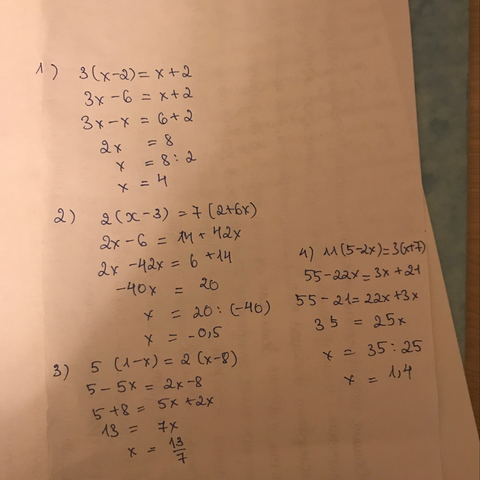 1) 3(x-2) = x+2
3x-6 = x+2
3x-x = 6+2
2x = 8
x = 8:2
x = 4
2) 2(x-3) = 7(2+6x)
2x-6 = 14+42x
2x-42x = 6+14
-40x = 20
x = 20:(-40)
x = -0,5
3) 5(1-x) = 2(x-8)
5-5x = 2x-8
5+8 = 5x+2x
13 = 7x
x = 13/7
4) 11(5-2x)=3(x+7)
55-22x=3x+21
55-21=22x+3x
35 = 25x
x = 35:25
x = 1,4